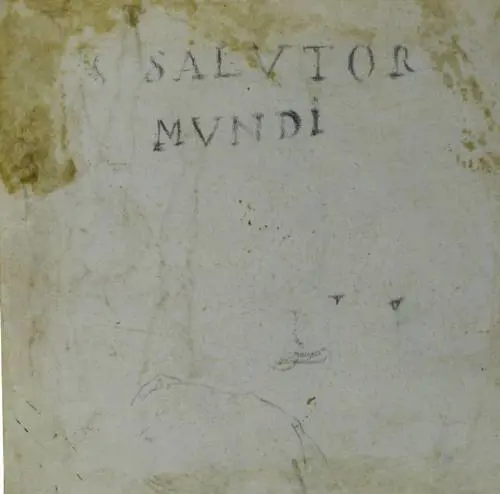 SALVTOR
MVNDI